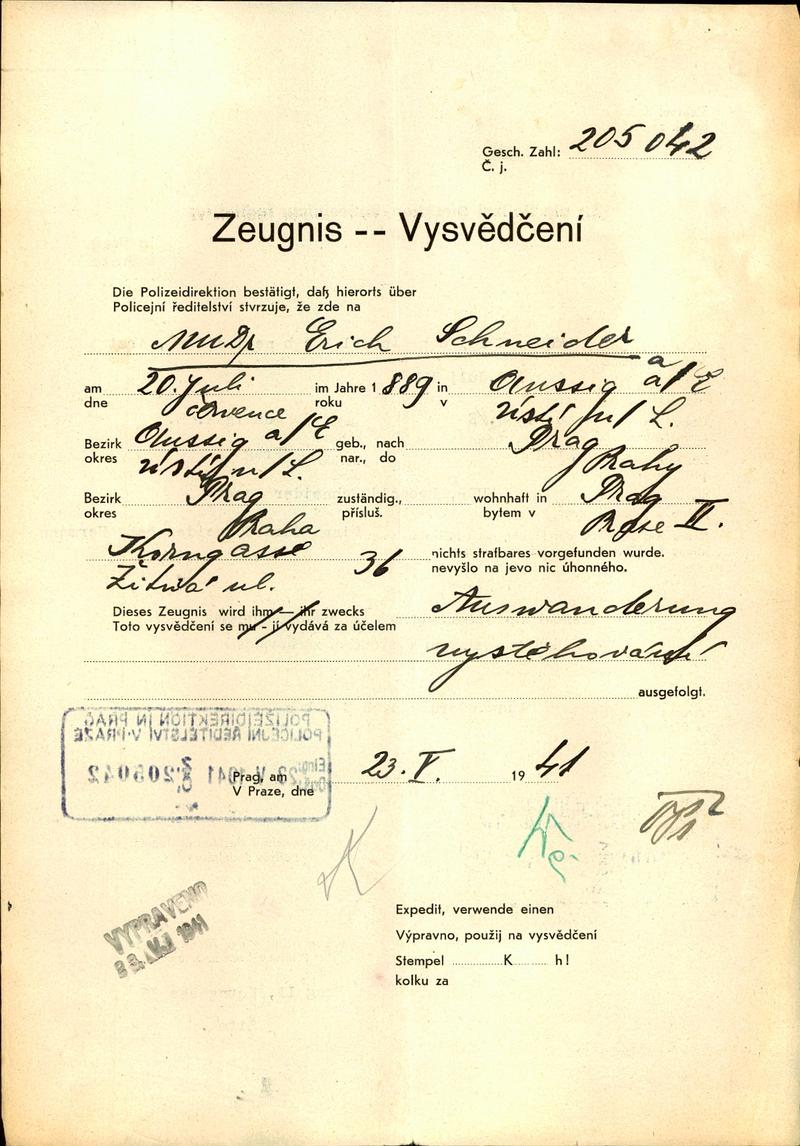 Gesch. Zahl: 205 042
Č. j.
Zeugnis -- Vysvědčení
Die Polizeidirektion bestätigt, daß hierorts über
Policejní ředitelství stvrzuje, že zde na
MUDr Erich Schneider
am 20. Juli im Jahre 1 889 in Aussig a/E
dne července roku v Ústí n/L.
Bezirk Aussig a/E geb., nach Prag
okres Ústí n/L. nar., do Prahy
Bezirk Prag zuständig., wohnhaft in Prag
okres Praha přísluš. bytem v Praze II.
Korngasse 36 nichts strafbares vorgefunden wurde.
Žitná ul. nevyšlo na jevo nic úhonného.
Dieses Zeugnis wird ihm — ihr zwecks Auswanderung
Toto vysvědčení se mu - jí vydává za účelem
vystěhování
ausgefolgt.
POLIZEIDIREKTION IN PRAG
POLICEJNÍ ŘEDITELSTVÍ V PRAZE
205042
Prag, am 23. V. 19 41
V Praze, dne
VYPRAVENO
1941
Expedit, verwende einen
Výpravno, použij na vysvědčení
Stempel K h!
kolku za